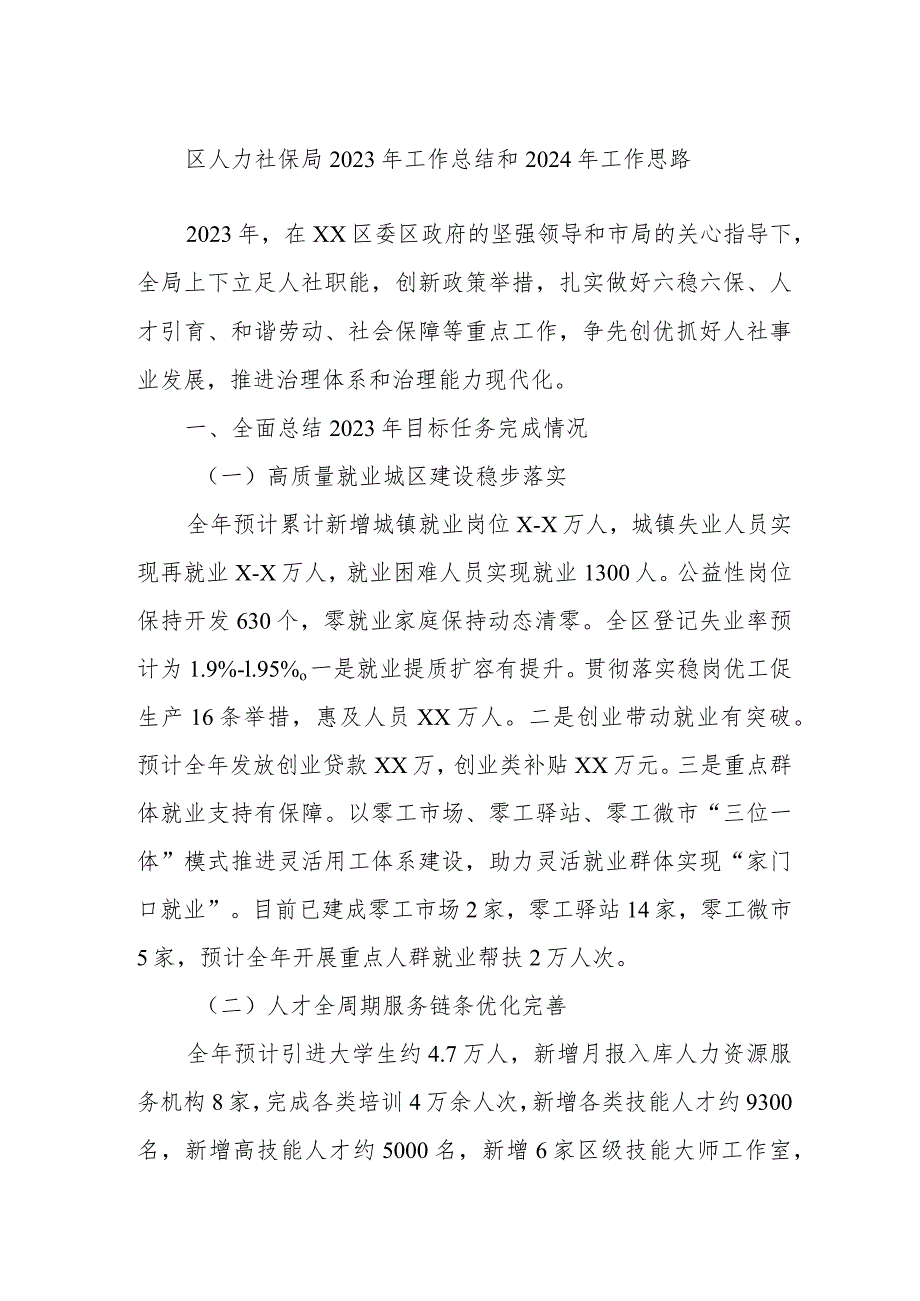 区人力社保局 2023 年工作总结和 2024 年工作思路
2023 年，在 XX 区委区政府的坚强领导和市局的关心指导下，
全局上下立足人社职能，创新政策举措，扎实做好六稳六保、人
才引育、和谐劳动、社会保障等重点工作，争先创优抓好人社事
业发展，推进治理体系和治理能力现代化。
一、全面总结 2023 年目标任务完成情况
（一）高质量就业城区建设稳步落实
全年预计累计新增城镇就业岗位 X-X 万人，城镇失业人员实
现再就业 X-X 万人，就业困难人员实现就业 1300 人。公益性岗位
保持开发 630 个，零就业家庭保持动态清零。全区登记失业率预
计为 1.9%-l.95%o 一是就业提质扩容有提升。贯彻落实稳岗优工促
生产 16 条举措，惠及人员 XX 万人。二是创业带动就业有突破。
预计全年发放创业贷款 XX 万，创业类补贴 XX 万元。三是重点群
体就业支持有保障。以零工市场、零工驿站、零工微市“三位一
体”模式推进灵活用工体系建设，助力灵活就业群体实现“家门
口就业”。目前已建成零工市场 2 家，零工驿站 14 家，零工微市
5 家，预计全年开展重点人群就业帮扶 2 万人次。
（二）人才全周期服务链条优化完善
全年预计引进大学生约 4.7 万人，新增月报入库人力资源服
务机构 8 家，完成各类培训 4 万余人次，新增各类技能人才约 9300
名，新增高技能人才约 5000 名，新增 6 家区级技能大师工作室，